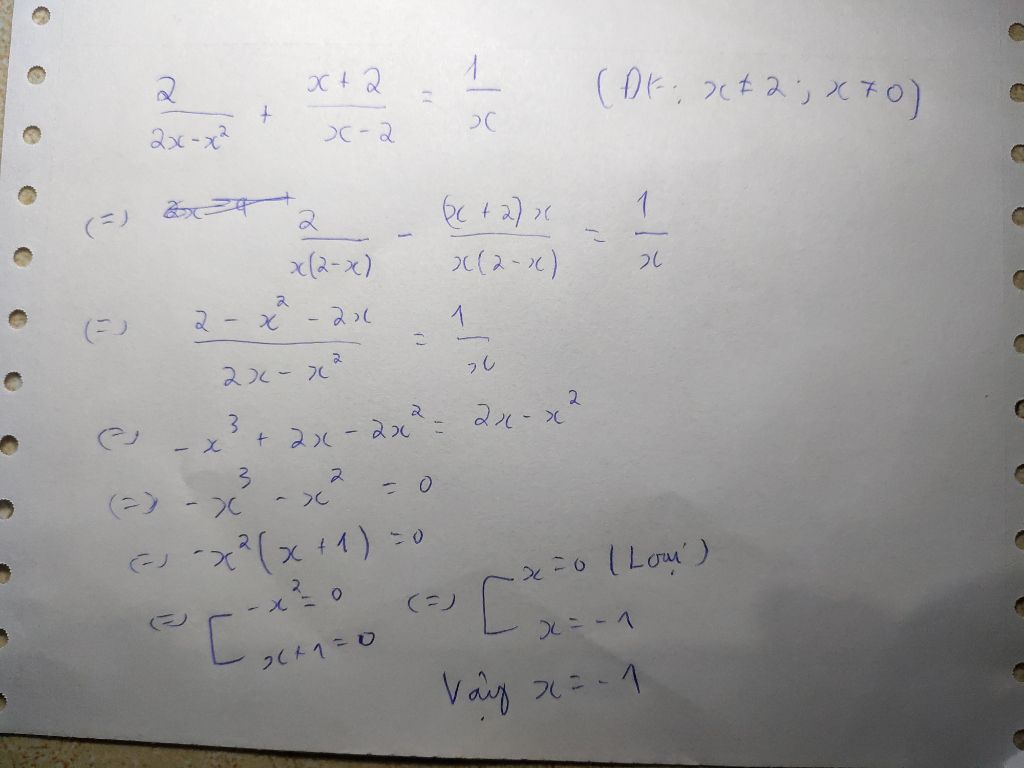 2/(2x-x²) + (x+2)/(x-2) = 1/x (ĐK: x≠2; x≠0)
(=) 2/(x(2-x)) - ((x+2)x)/(x(2-x)) = 1/x
(=) (2-x²-2x)/(2x-x²) = 1/x
(=) -x³ + 2x - 2x² = 2x - x²
(=) -x³ - x² = 0
(=) -x²(x+1) = 0
(=) [ -x² = 0 (=) [ x = 0 (Loại)
x+1 = 0 x = -1
Vậy x = -1